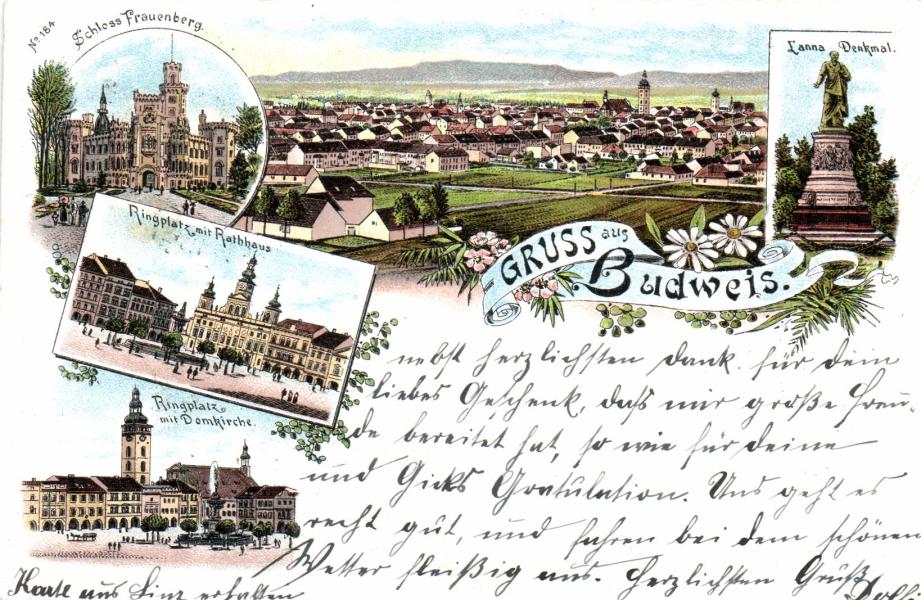 No. 184
Schloss Frauenberg.
Lanna Denkmal.
Ringplatz mit Rathhaus
GRUSS aus
Budweis.
Ringplatz
mit Domkirche.
nebst herzlichsten Dank für Dein
liebes Geschenk, daß mir große Freu-
de bereitet hat, so wie für Deine
und Gicks Gratulation. Uns geht es
recht gut, und fahren bei dem schönen
Wetter fleißig aus. Herzlichsten Gruß
Karte aus Linz erhalten